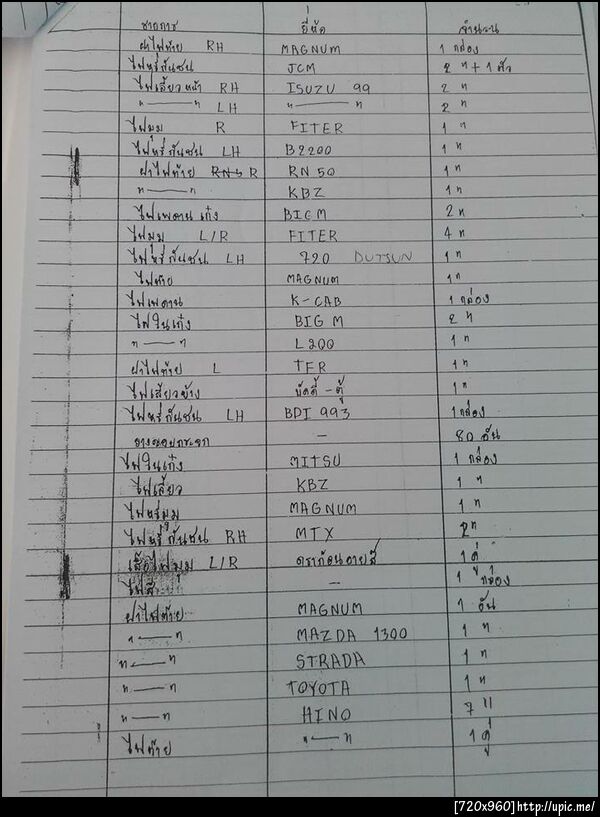 รายการ ยี่ห้อ จำนวน
ฝาไฟท้าย RH MAGNUM 1 กล่อง
ไฟหรี่กันชน JCM 2 " + 1 ตัว
ไฟเลี้ยวหน้า RH ISUZU 99 2 "
" — " LH " — " 2 "
ไฟมุม R FITER 1 "
ไฟหรี่กันชน LH B2200 1 "
ฝาไฟท้าย R RN 50 1 "
" — " KBZ 1 "
ไฟเพดานเก๋ง BIG M 2 "
ไฟมุม L/R FITER 4 "
ไฟหรี่กันชน LH 720 DUTSUN 1 "
ไฟท้าย MAGNUM 1 "
ไฟเพดาน K-CAB 1 กล่อง
ไฟในเก๋ง BIG M 2 "
" — " L200 1 "
ฝาไฟท้าย L TFR 1 "
ไฟเลี้ยวข้าง บัดดี้ - ตู้ 1 "
ไฟหรี่กันชน LH BDI 993 1 กล่อง
กระจก — 80 อัน
ไฟในเก๋ง MITSU 1 กล่อง
ไฟเลี้ยว KBZ 1 "
ไฟหรี่มุม MAGNUM 1 "
ไฟหรี่กันชน RH MTX 2 "
เสื้อไฟมุม L/R ดราก้อนอายส์ 1 คู่
— 1 กล่อง
ฝาไฟท้าย MAGNUM 1 อัน
" — " MAZDA 1300 1 "
" — " STRADA 1 "
" — " TOYOTA 1 "
" — " HINO 7 "
ไฟท้าย " — " 1 คู่
[720x960] http://upic.me/